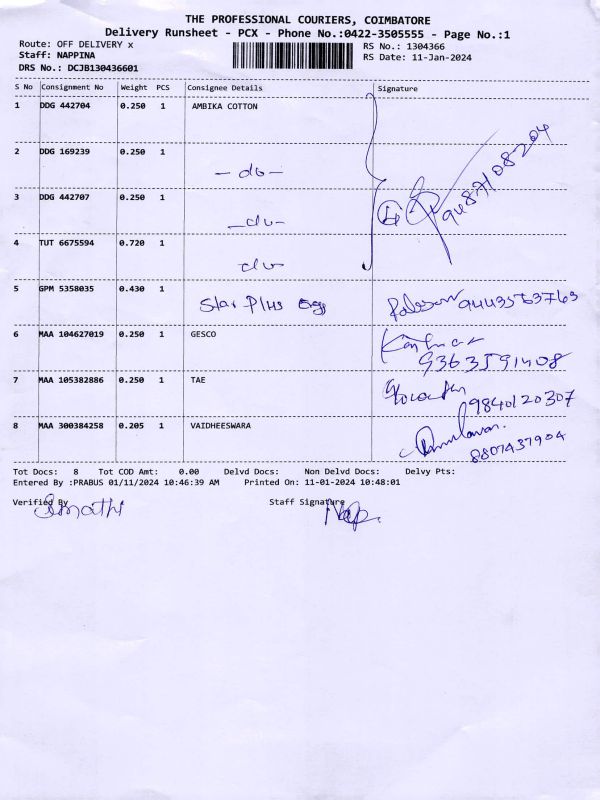 THE PROFESSIONAL COURIERS, COIMBATORE
Delivery Runsheet - PCX - Phone No.:0422-3505555 - Page No.:1
Route: OFF DELIVERY x
RS No.: 1304366
Staff: NAPPINA
RS Date: 11-Jan-2024
DRS No.: DCJB130436601
S No Consignment No Weight PCS Consignee Details Signature
1 DDG 442704 0.250 1 AMBIKA COTTON
2 DDG 169239 0.250 1 -do-
3 DDG 442707 0.250 1 -do-
4 TUT 6675594 0.720 1 do
5 GPM 5358035 0.430 1 Star Plus 9443563763
6 MAA 104627019 0.250 1 GESCO 9363591408
7 MAA 105382886 0.250 1 TAE 9840120307
8 MAA 300384258 0.205 1 VAIDHEESWARA 8807437904
Tot Docs: 8 Tot COD Amt: 0.00 Delvd Docs: Non Delvd Docs: Delvy Pts:
Entered By :PRABUS 01/11/2024 10:46:39 AM Printed On: 11-01-2024 10:48:01
Verified By Staff Signature